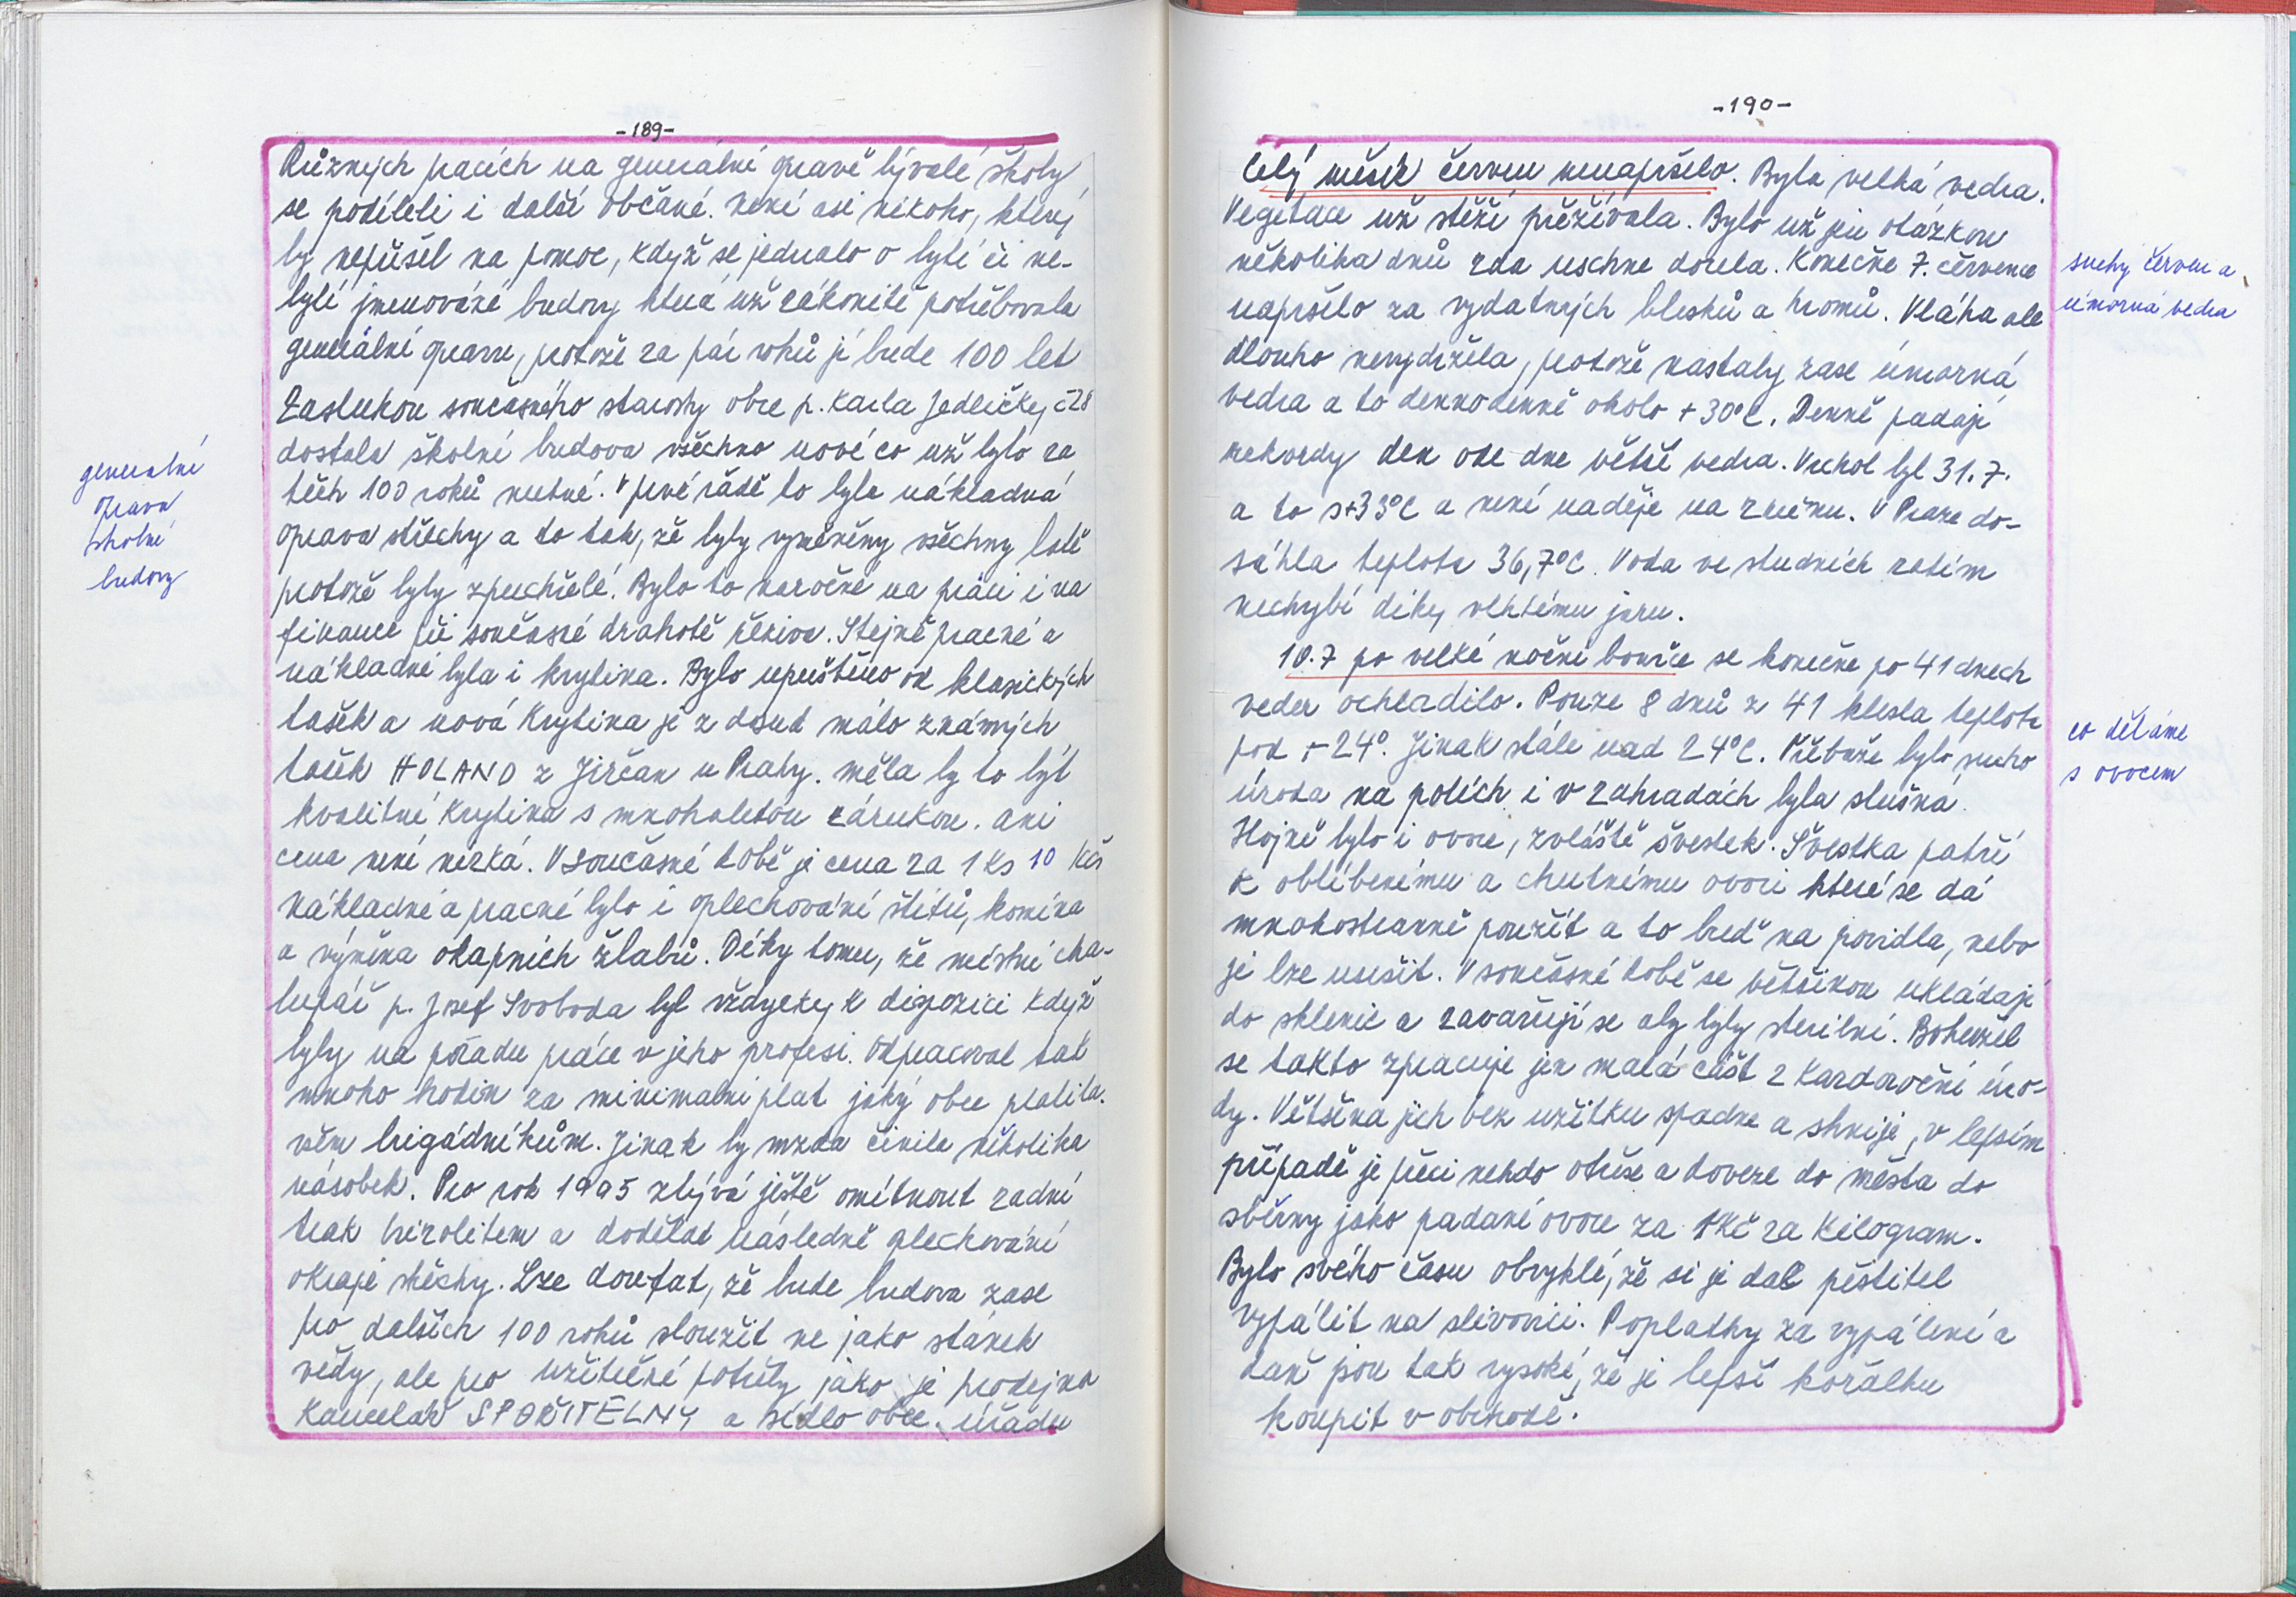 -189-
Různých pracích na generální opravě bývalé školy
se podíleli i další občané. Není asi nikoho, který
by nepřišel na pomoc, když se jednalo o bytí či ne-
bytí jmenované budovy která už zákonitě potřebovala
generální opravu, protože za pár roků jí bude 100 let
Zásluhou současného starosty obce p. Karla Jedličky č28
dostala školní budova všechno nové co už bylo za
těch 100 roků nutné. V prvé řádě to byla nákladná
oprava střechy a to tak, že byly vyměněny všechny latě
protože byly zpuchřelé. Bylo to náročné na práci i na
finance při současné drahotě řeziva. Stejně pracné a
nákladné byla i krytina. Bylo upuštěno od klasických
tašek a nová krytina je z dosud málo známých
tašek HOLAND z Jirčan u Prahy. měla by to být
kvalitní krytina s mnohaletou zárukou. ani
cena není nízká. V současné době je cena za 1 ks 10 Kčs
Nákladné a pracné bylo i oplechování štítů, komína
a výměna okapních žlabů. Díky tomu, že místní cha-
lupář p. Josef Svoboda byl vždycky k dispozici když
byly na pořadu práce v jeho profesi. Odpracoval tak
mnoho hodin za minimalní plat jaký obec platila
všem brigádníkům. Jinak by mzda činila několika
násobek. Pro rok 1995 zbývá ještě omítnout zadní
trak brizolitem a dodělat následně oplechování
okraje střechy. Lze doufat, že bude budova zase
pro dalších 100 roků sloužit ne jako stánek
vědy, ale pro užitečné potřeby jako je prodejna
kancelář SPOŘITELNY a sídlo obec. úřadu
generalní
oprava
školní
budovy
-190-
Celý měsíc červen nenapršelo. Byla velká vedra.
Vegetace už stěží přežívala. Bylo už jen otázkou
několika dnů zda uschne docela. Konečne 7. července
napršelo za vydatných blesků a hromů. Vláha ale
dlouho nevydržela, protože nastaly zase úmorná
vedra a to dennodenně okolo +30°C. Denně padají
rekordy den ode dne větší vedra. Vrchol byl 31.7.
a to s+33°C a není naděje na změnu. V Praze do-
sáhla teplota 36,7°C. Voda ve studních zatím
nechybí díky vlhkému jaru.
10.7 po velké noční bouřce se konečne po 41 dnech
veder ochladilo. Pouze 8 dnů z 41 klesla teplota
pod +24°. Jinak stále nad 24°C. Přěbuže bylo sucho
úroda na polích i v zahradách byla slušná.
Hojně bylo i ovoce, zvláště švestek. Švestka patří
k oblíbenému a chutnému ovoci které se dá
mnohostranně použít a to buď na povidla, nebo
je lze usušit. V současné době se většinou ukládají
do sklenic a zavařují se aby byly sterilní. Bohužel
se takto zpracuje jen malá část z každoroční úro-
dy. Většina jich bez užitku spadne a shnije, v lepsím
případě je přeci někdo otřese a doveze do města do
sběrny jako padané ovoce za 1Kč za kilogram.
Bylo svého času obvyklé, že si je dal pěstitel
vypálit na slivovici. Poplatky za vypálení a
daň jsou tak vysoké, že je lepší kořalku
koupit v obchodě.
suchy červen a
úmorná vedra
co děláme
s ovocem